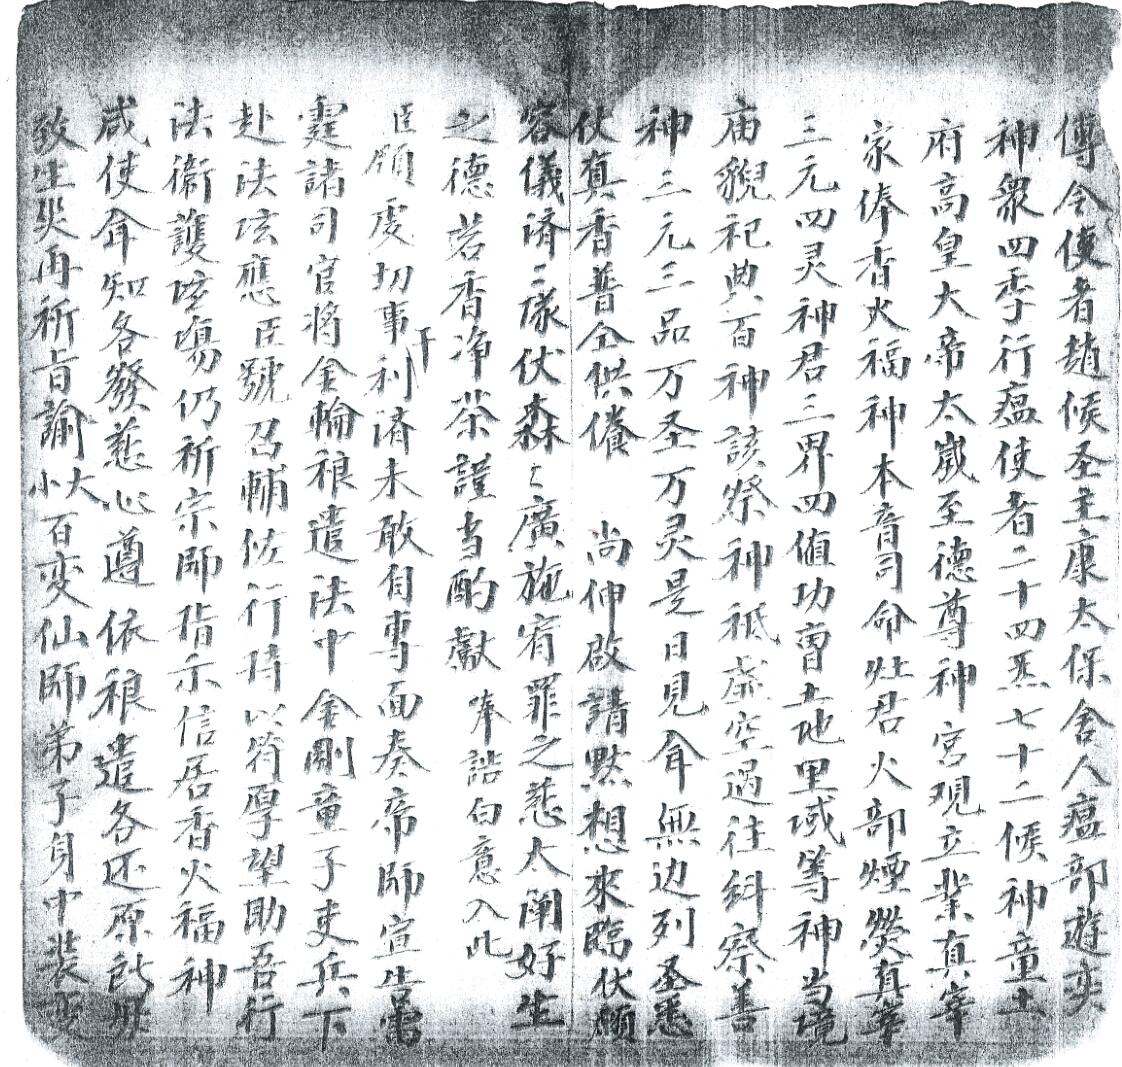 傅令使者趙候圣主康太保舍人瘟部遊奕
神衆四季行瘟使者二十四炁七十二候神童土
府高皇大帝太嵗至德尊神宮观立業真宰
家俸香火福神本音司命灶君火部煙熒真宰
三元四灵神君三界四值功曹土地里域等神当境
庙貌祀典百神該祭神祗虛空過往糾察善
神三元三品万圣万灵是日見聞無边列圣悉
仗真香普仝供養 尚伸啟請黙想來臨伏願
容儀济二㒸伏森々廣施宥罪之慈太闡好生
之德茗香净茶謹当酌獻 奉誥白意入此
臣領虔切事干利済未敢自専面奏帝師宣告雷
霆諸司官将金輪稂遣法中金剛童子吏兵下
赴法坛應臣號召輔佐行持以符厚望助吾行
法衛護坛塲仍祈宗師指示信居香火福神
咸使聞知各發慈心遵依稂遣各还原
致生災再祈旨諭大小百变仙師弟子身中装变